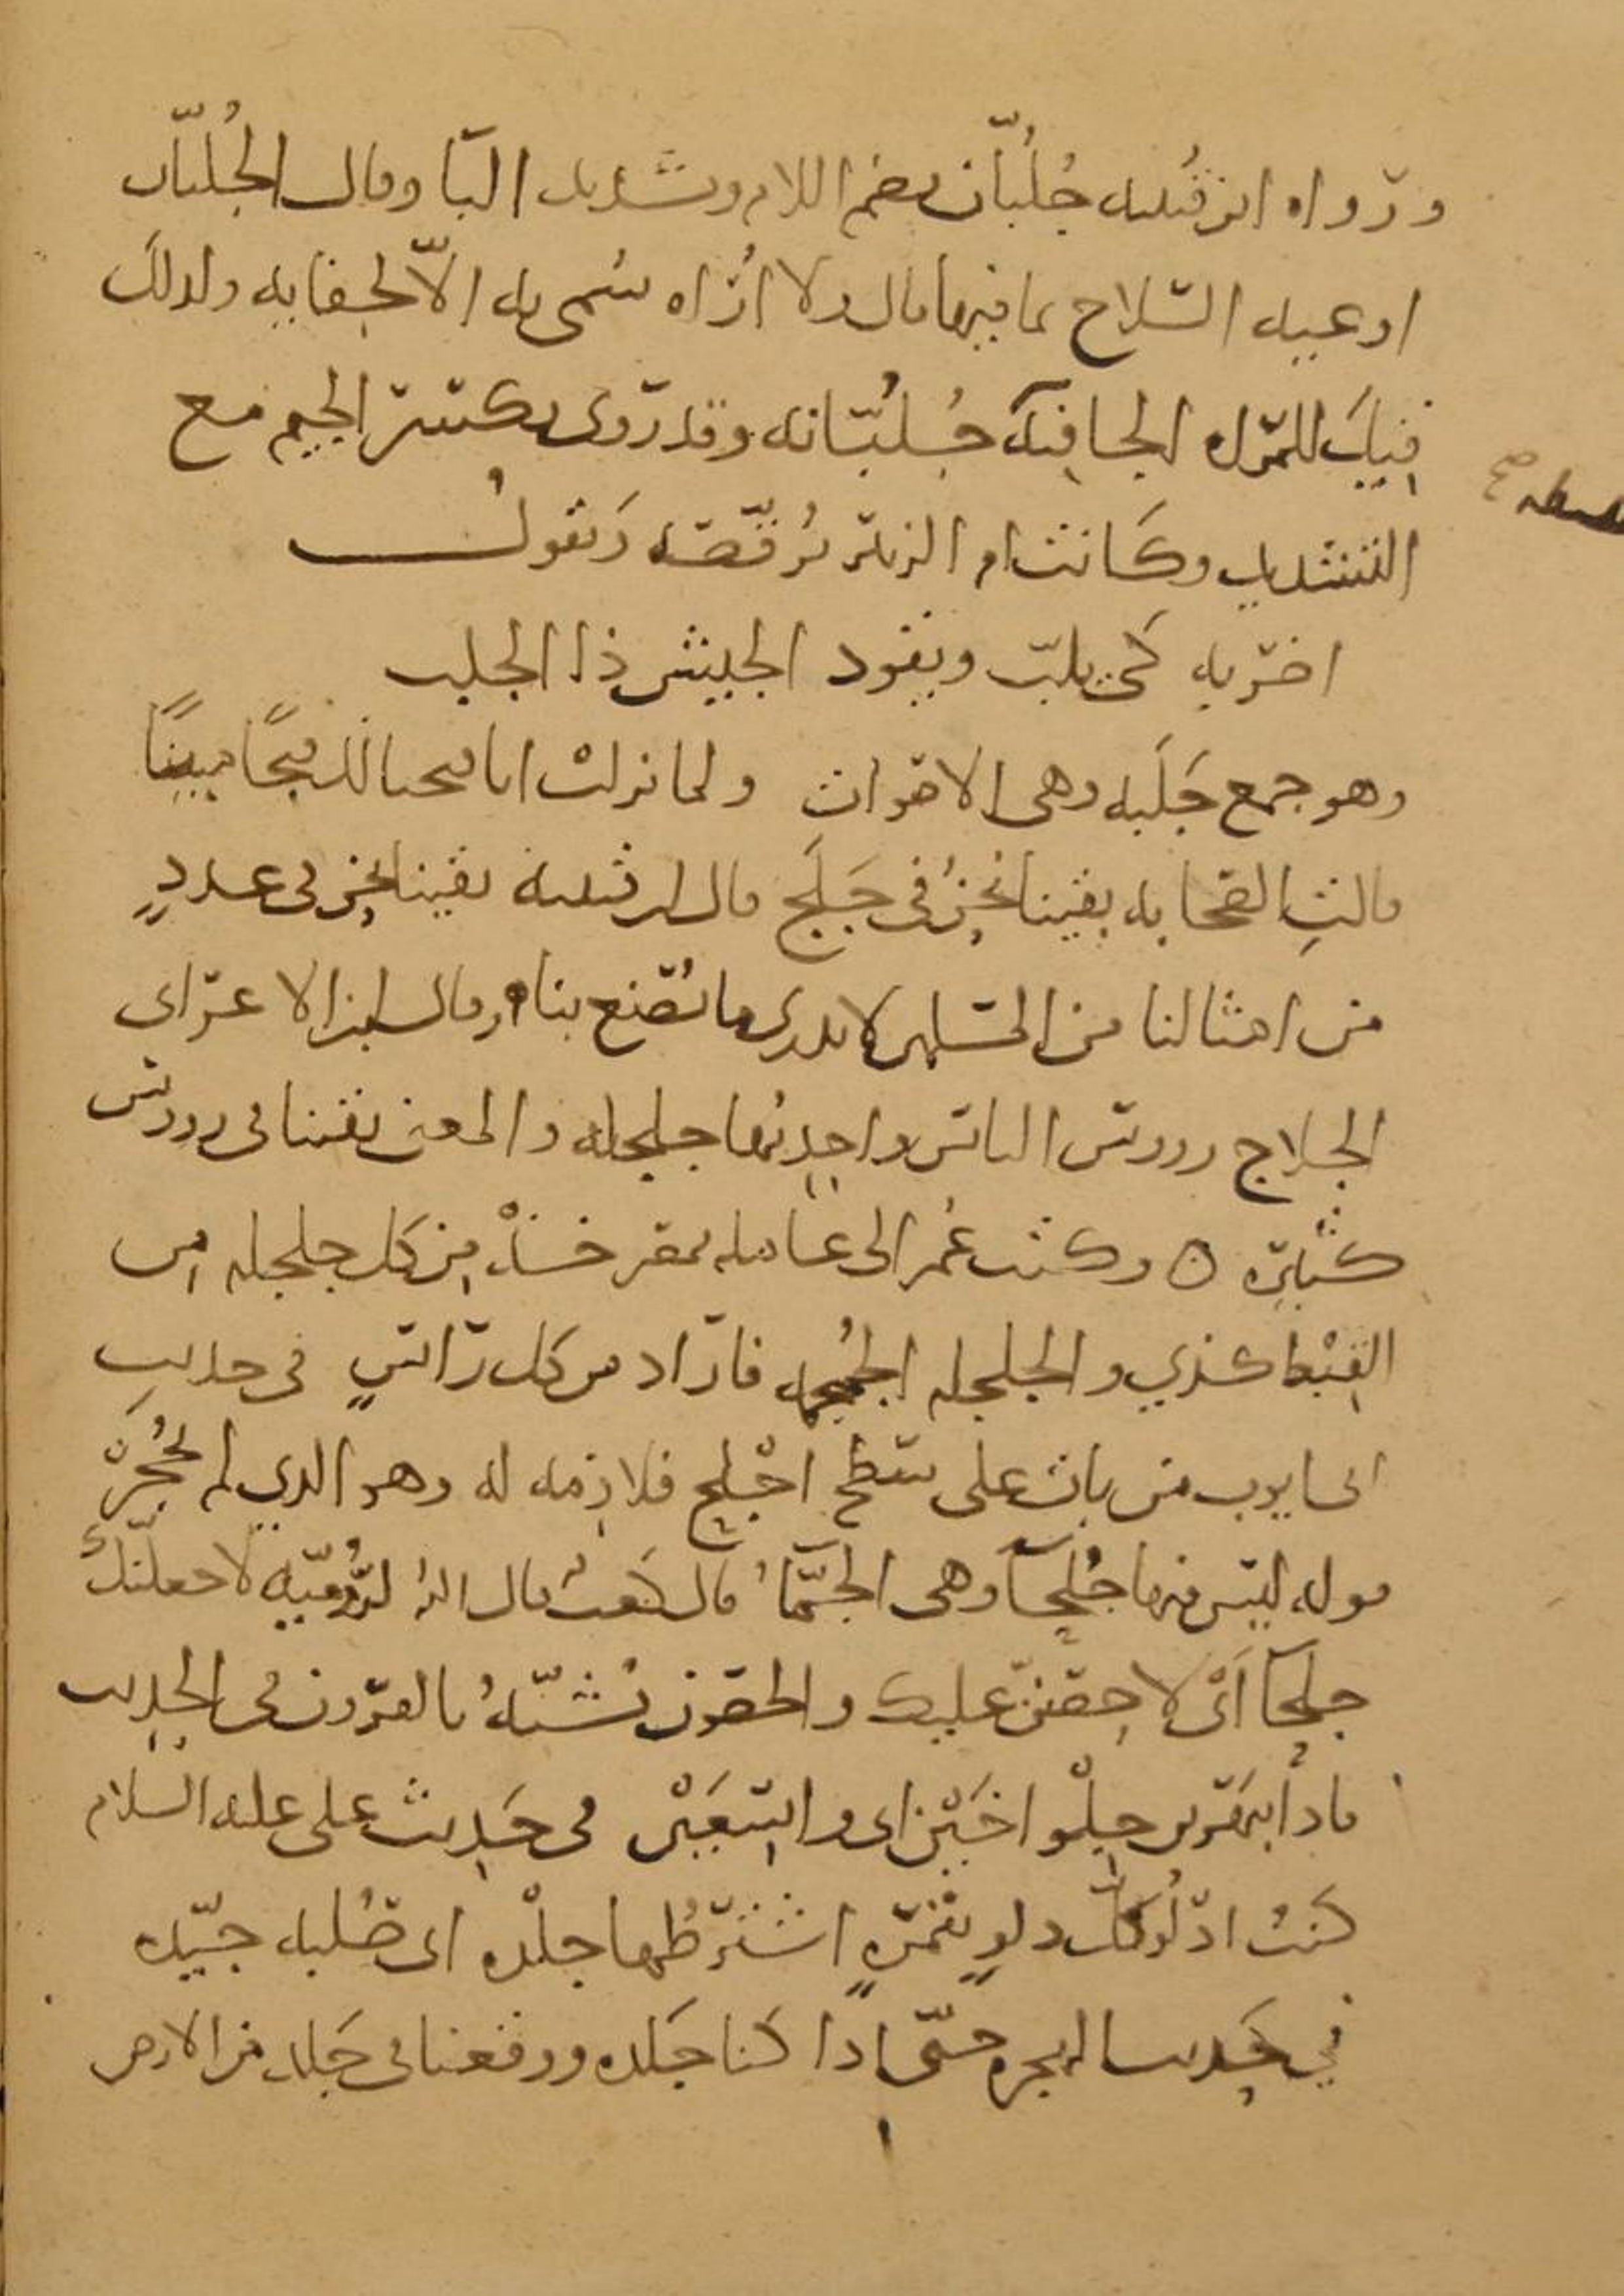 ورواه ابن قُتيبه جُلُبّان بضم اللام وتشديد البا وقال الجُلبّان
اوعيه السّلاح بما فيها قال ولا اُراه سُمى به الاّ لجفايه ولذلك
قيل للمراه الجافيه جُلُبّانه وقد روى بكسر الجيم مع
التشديد وكانت ام الزبير تُرقّصه وَتقولُ
اضربه كى يلبّ ويقود الجيش ذا الجلب
وهو جمع جَلَبه وهى الاصوات ولما نزلت انا فتحنا لك فتحًا مبينًا
قالتِ الصحابه بقينا نحنُ فى جَلَج قال ابن قتيبه بقينا نحن فى عددٍ
من امثالنا من المسلمين لا ندرى ما نُصنع بنا وقال ابن الاعرابى
الجلاج رووس الناس واحدتُها جلجله والمعنى بقينا فى رووس
كثيره ٥ وكتب عُمر الى عامله بمصر خُذْ من كل جلجله من
القبْط كذى والجلجله الجُمجمه فاراد من كل راسٍ فى حديث
ابى ايوب من بات على سَطح اجْلح فلا ذمه له وهو الذى لم يُحْجَرْ
قوله ليس فيها جُلحآ وهى الجمّآُ قال كعبُ قال اللهُ لرُوميّه لاجعلنّكِ
جلحآ اَىْ لا حصنَ عليك والحصون تُشبّهُ بالقرون فى الحديث
فاذا بنهرين جِلْواخَيْن اى واسِعَيْن فى حَديث على عليه السلام
كنتُ ادلُو كلّ دلوٍ بتمرهٍ اشترطُها جلْده اى صُلبه جيّده
في حَديث الهجره حتّى اذا كنا جَلده ووقعنا فى جَلد من الارض